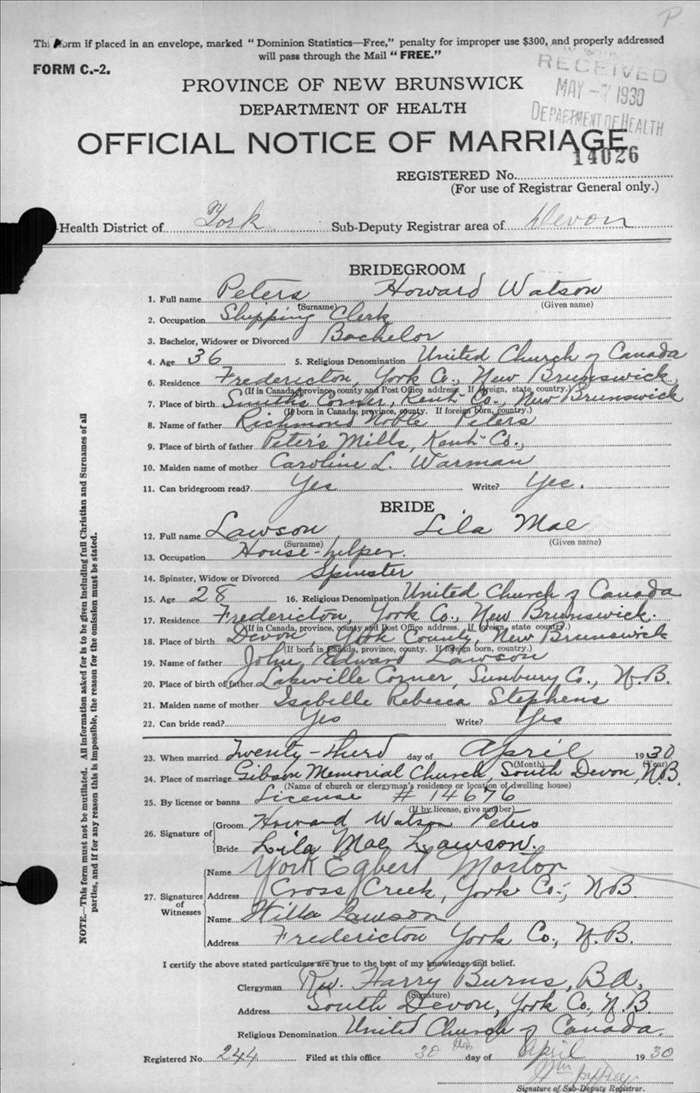 P
This form if placed in an envelope, marked "Dominion Statistics—Free," penalty for improper use $300, and properly addressed
will pass through the Mail "FREE."
FORM C.-2.
RECEIVED
MAY -7 1930
DEPARTMENT OF HEALTH
PROVINCE OF NEW BRUNSWICK
DEPARTMENT OF HEALTH
OFFICIAL NOTICE OF MARRIAGE
14026
REGISTERED No.
(For use of Registrar General only.)
Health District of York Sub-Deputy Registrar area of Devon
BRIDEGROOM
1. Full name Peters Howard Watson
(Surname) (Given name)
2. Occupation Shipping Clerk
3. Bachelor, Widower or Divorced Bachelor
4. Age 36 5. Religious Denomination United Church of Canada
6. Residence Fredericton, York Co., New Brunswick
(If in Canada, province, county and Post Office address. If foreign, state, country.)
7. Place of birth Smiths Corner, Kent Co., New Brunswick
(If born in Canada, province, county. If foreign born, country.)
8. Name of father Richmond Noble Peters
9. Place of birth of father Peter's Mills, Kent Co.,
10. Maiden name of mother Caroline L. Warman
11. Can bridegroom read? Yes Write? Yes.
BRIDE
12. Full name Lawson Lila Mae
(Surname) (Given name)
13. Occupation House-helper.
14. Spinster, Widow or Divorced Spinster
15. Age 28 16. Religious Denomination United Church of Canada
17. Residence Fredericton, York Co., New Brunswick.
(If in Canada, province, county and Post Office address. If foreign, state, country.)
18. Place of birth Devon, York County, New Brunswick
(If born in Canada, province, county. If foreign born, country.)
19. Name of father John Edward Lawson
20. Place of birth of father Lakeville Corner, Sunbury Co., N.B.
21. Maiden name of mother Isabelle Rebecca Stephens
22. Can bride read? Yes Write? Yes
23. When married Twenty-third day of April 1930
(Month) (Year)
24. Place of marriage Gibson Memorial Church, South Devon, N.B.
(Name of church or clergyman's residence or location of dwelling house)
25. By license or banns License # 14676
(If by license, give number)
26. Signature of Groom Howard Watson Peters
Bride Lila Mae Lawson.
27. Signatures of Witnesses
Name York Egbert Morton
Address Cross Creek, York Co., N.B.
Name Willa Lawson
Address Fredericton York Co., N.B.
I certify the above stated particulars are true to the best of my knowledge and belief.
Clergyman Rev. Harry Burns, B.A.
(Signature)
Address South Devon, York Co., N.B.
Religious Denomination United Church of Canada.
Registered No. 244 Filed at this office 30th day of April 1930
Signature of Sub-Deputy Registrar.
NOTE.—This form must not be mutilated. All information asked for is to be given including full Christian and Surnames of all
parties, and if for any reason this is impossible, the reason for the omission must be stated.